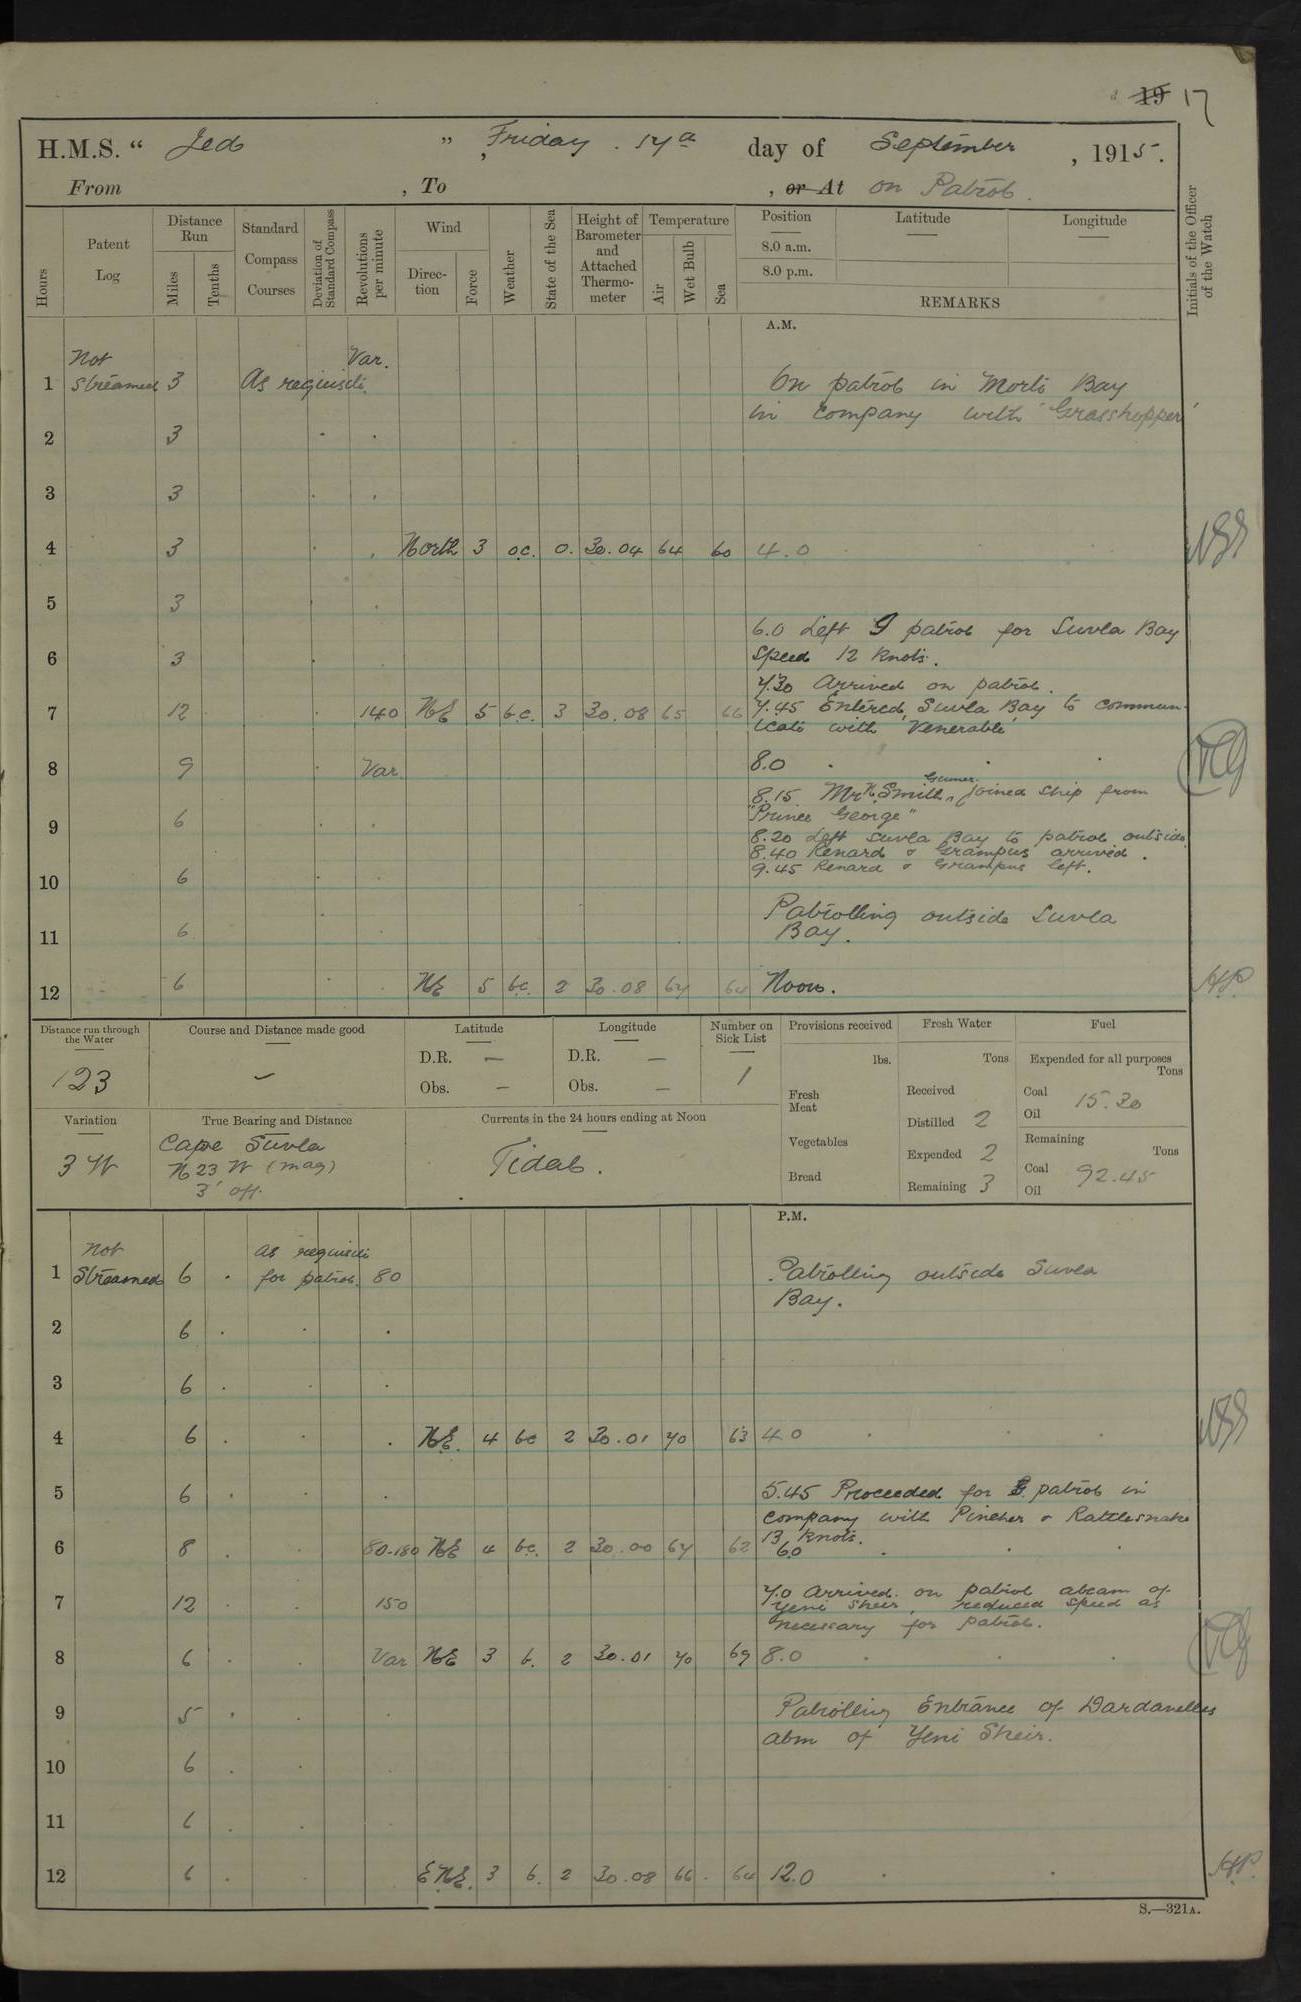 19 17
H.M.S. “ Jed ” Friday . 17th day of September , 1915.
From , To , or At on Patrol.
Hours
Patent Log
Distance Run
Miles
Tenths
Standard Compass Courses
Deviation of Standard Compass
Revolutions per minute
Wind
Direction
Force
Weather
State of the Sea
Height of Barometer and Attached Thermometer
Temperature
Air
Wet Bulb
Sea
Position
8.0 a.m.
8.0 p.m.
Latitude —
Longitude —
REMARKS
Initials of the Officer of the Watch
A.M.
Not Var.
1 streamed 3 As requisite On patrol in Morto Bay
in company with 'Grasshopper'
2 3
3 3
4 3 North 3 o.c. 0. 30.04 64 60 4.0
5 3
6.0 Left patrol for Suvla Bay
6 3 Speed 12 knots.
7.30 Arrived on patrol.
7 12 140 NE 5 b.c. 3 30.08 65 66 7.45 Entered Suvla Bay to commun-
icate with 'Venerable'
8 9 Var 8.0
Gunner.
8.15 Mr N. Smith, joined ship from
9 6 "Prince George"
8.20 Left Suvla Bay to patrol outside
8.40 Renard & Grampus arrived.
10 6 9.45 Renard & Grampus left.
Patrolling outside Suvla
11 6 Bay.
12 6 NE 5 bc. 2 30.08 67 64 Noon.
Distance run through the Water
123
Course and Distance made good
—
Latitude
D.R. —
Obs. —
Longitude
D.R. —
Obs. —
Number on Sick List
1
Provisions received
lbs.
Fresh Meat
Vegetables
Bread
Fresh Water
Tons
Received
Distilled 2
Expended 2
Remaining 3
Fuel
Expended for all purposes
Tons
Coal 15.30
Oil
Remaining
Tons
Coal 92.45
Oil
Variation
3 W
True Bearing and Distance
Cape Suvla
N 23 W (mag)
3' off.
Currents in the 24 hours ending at Noon
Tidal.
P.M.
Not as requisite
1 Streamed 6 for patrol. 80 Patrolling outside Suvla
Bay.
2 6
3 6
4 6 NE. 4 bc 2 30.01 70 63 4.0
5 6 5.45 Proceeded for patrol in
company with Pincher & Rattlesnake
13 knots.
6 8 80-180 NE 4 bc. 2 30.00 67 62 6.0
7.0 Arrived on patrol abeam of
7 12 150 Yeni Sheir, reduced speed as
necessary for patrol.
8 6 Var NE 3 b. 2 30.01 70 69 8.0
9 5 Patrolling Entrance of Dardanelles
abm of Yeni Sheir.
10 6
11 6
12 6 ENE. 3 b. 2 30.08 66 64 12.0
S.—321A.